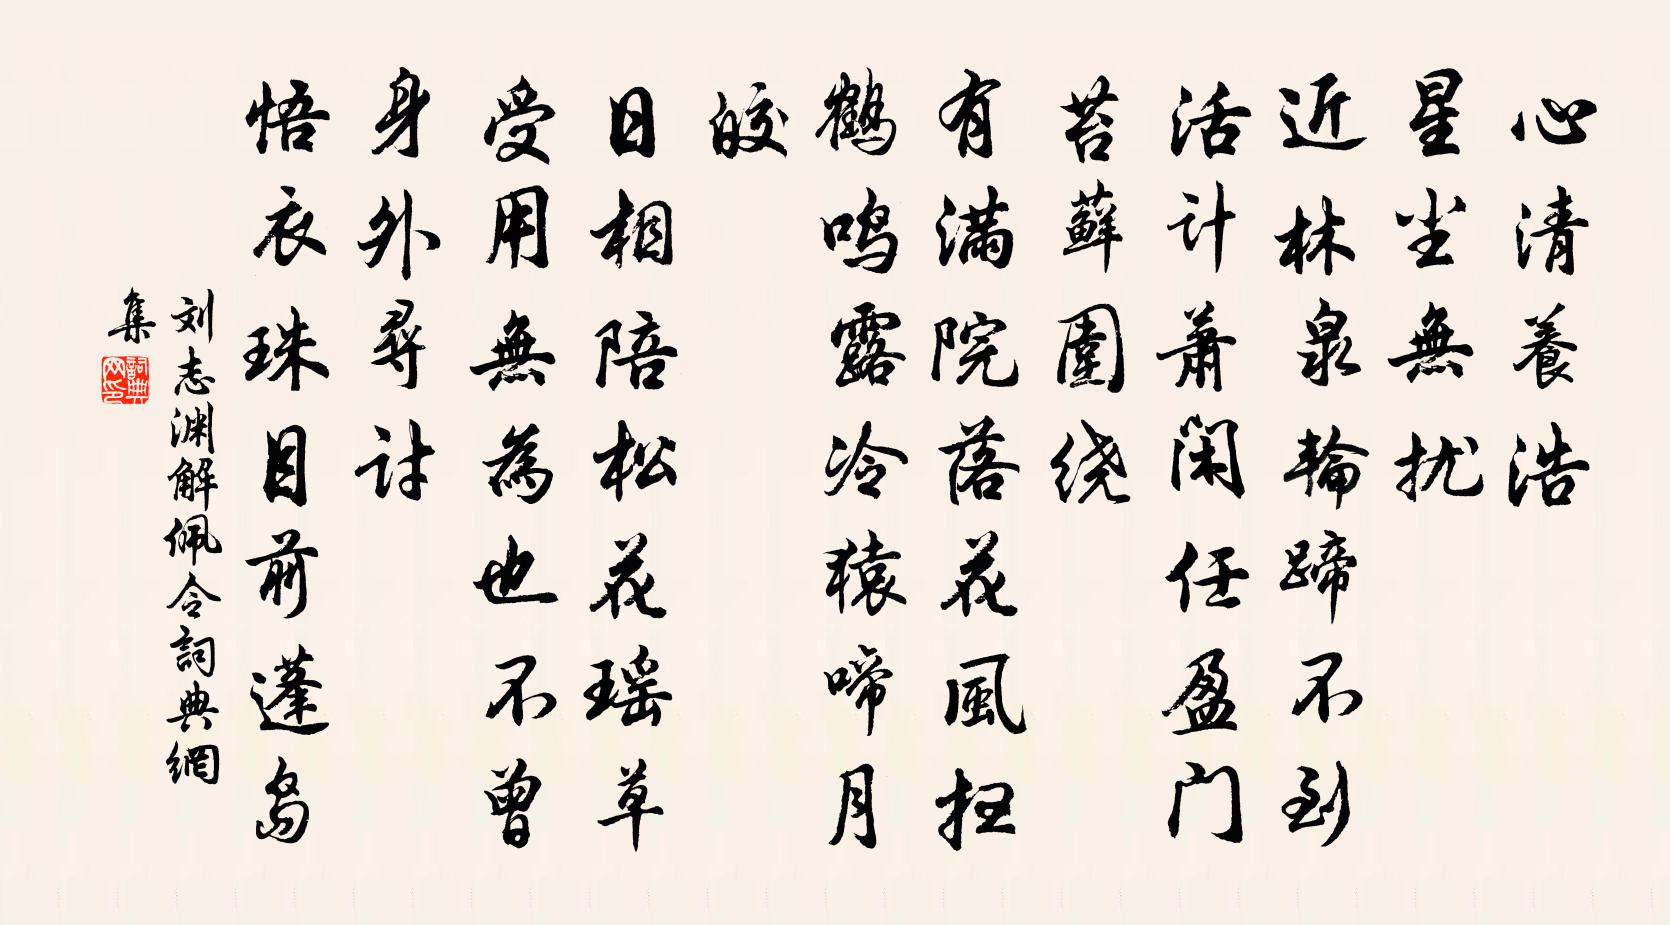 心清養浩
星尘無扰
近林泉輪蹄不到
活计蕭闲任盈门
苔蘚圍绕
有满院落花風狂
鹤鸣露冷猿啼月
皎
日相陪松花瑶草
受用無為也不曾
身外尋讨
悟衣珠目前蓬岛
刘志渊解佩令詞典網
集
詞典网印